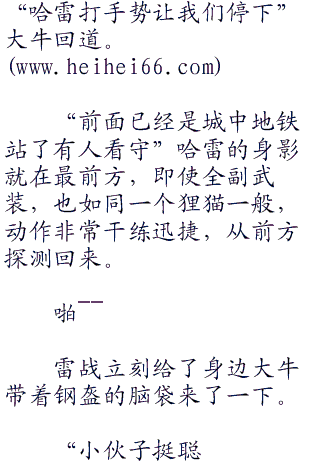 “哈雷打手势让我们停下”
大牛回道。
(www.heihei66.com)
“前面已经是城中地铁
站了有人看守”哈雷的身影
就在最前方，即使全副武
装，也如同一个狸猫一般，
动作非常干练迅捷，从前方
探测回来。
啪——
雷战立刻给了身边大牛
带着钢盔的脑袋来了一下。
“小伙子挺聪